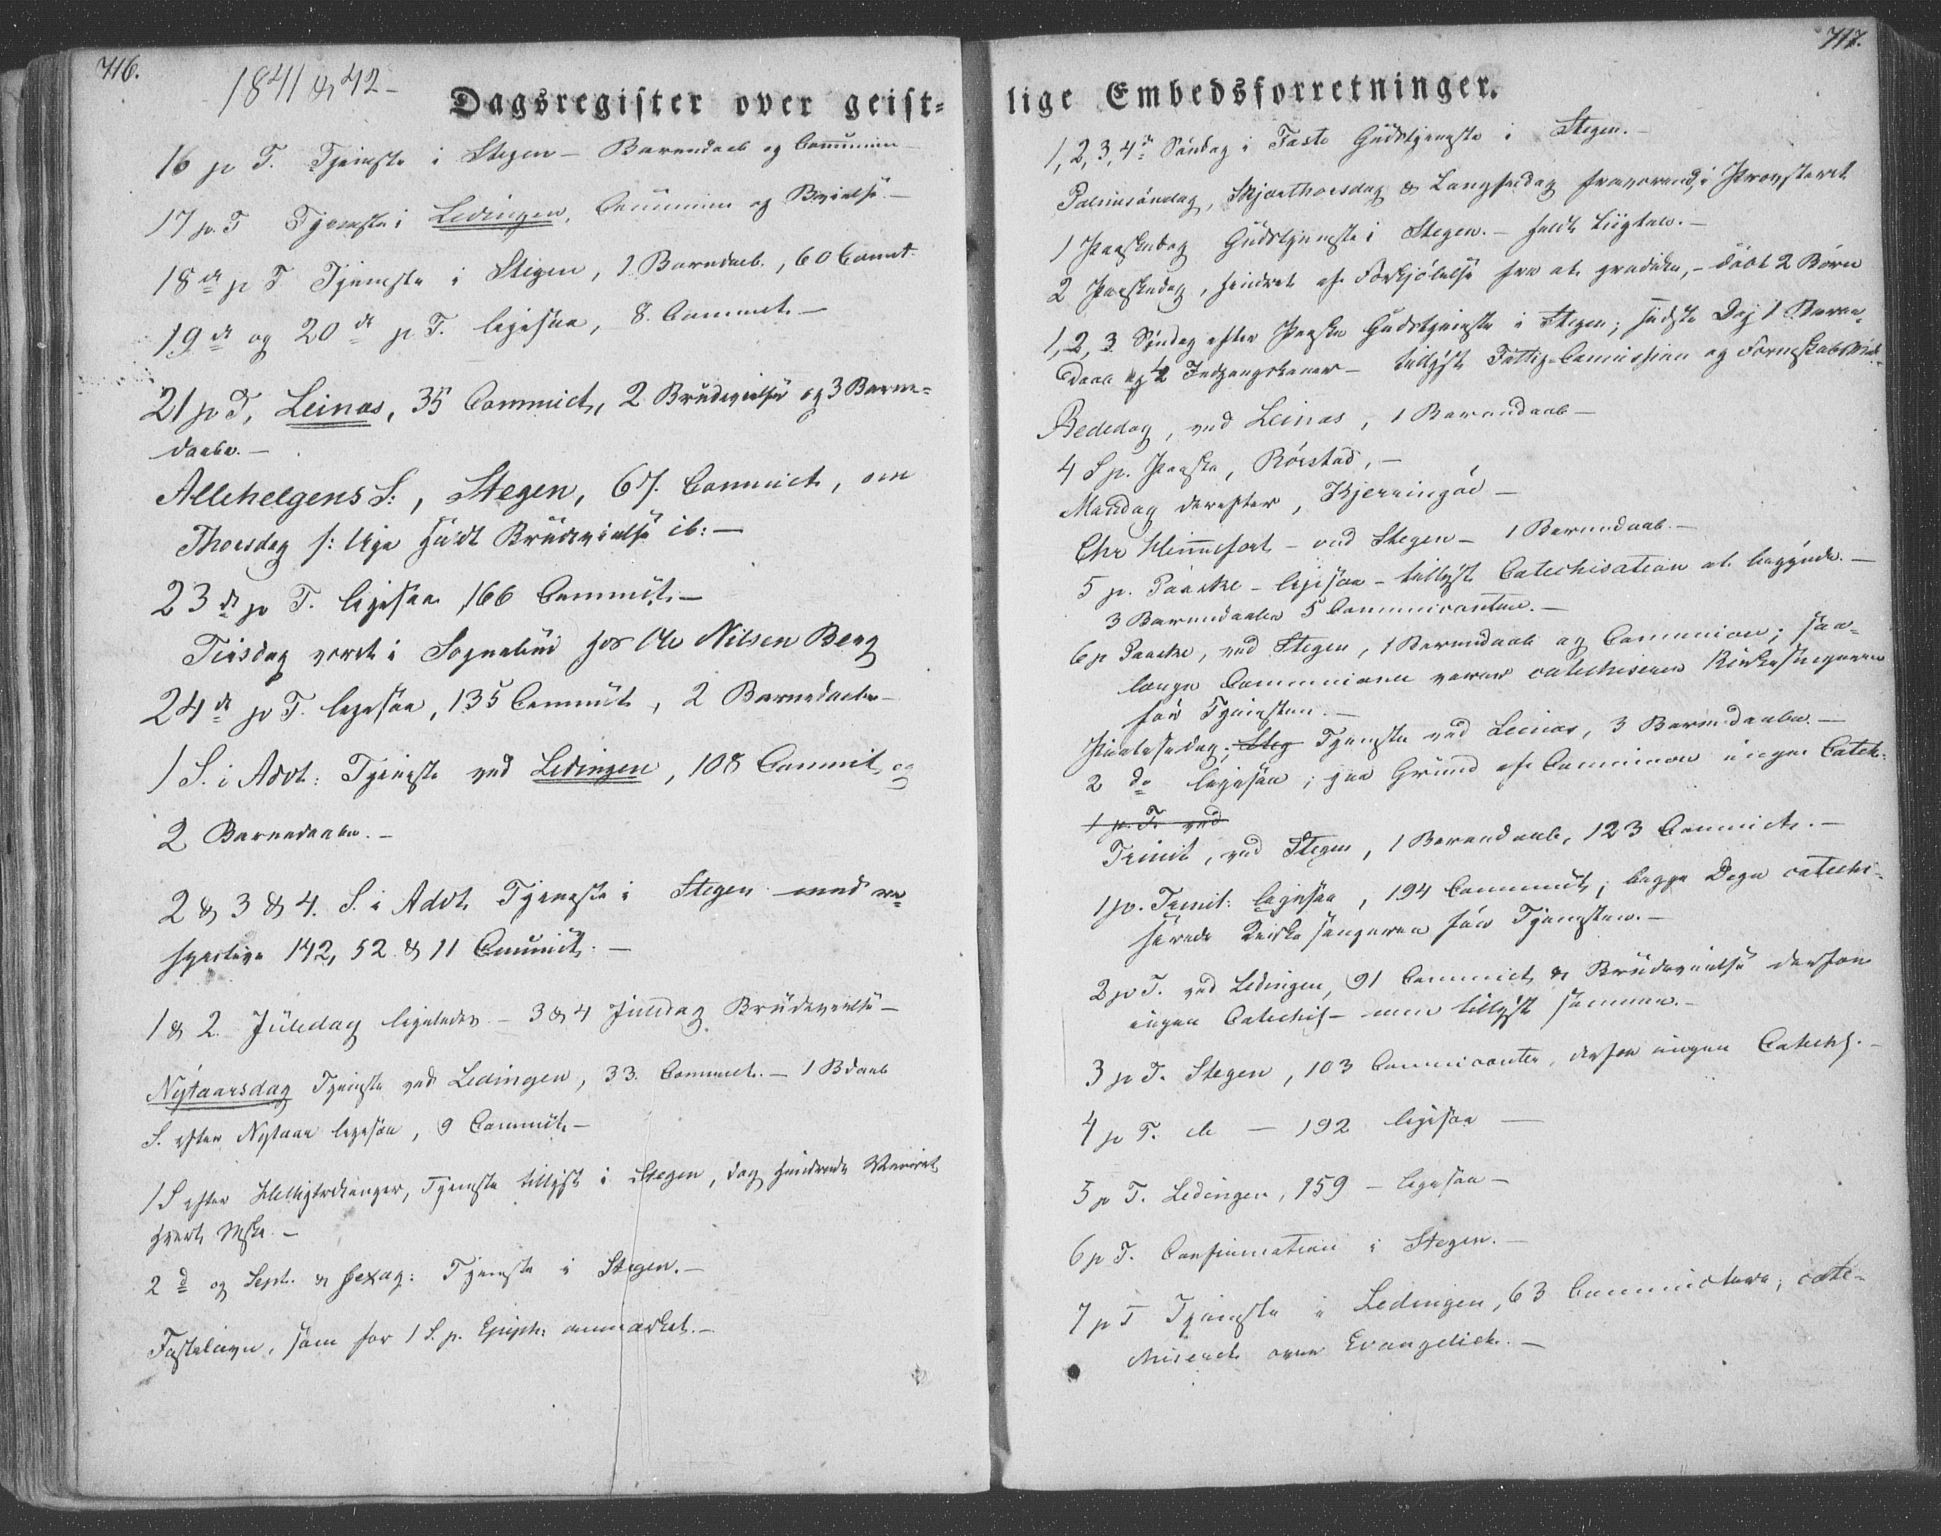 716.
1841 & 42 –
Dagsregister over geist-
16 p T. Tjeneste i Stegen – Barnedaab og Communion
17 p. T Tjeneste i Ledingen, Communion og Bvielse. –
18de p T Tjeneste i Stegen, 1. Barnedaab, 60 Commt.
19de og 20de p T. ligesaa, 8. Commct. –
21 p T, Leinæs, 35 Commict, 2 Brudevielser og 3 Barne-
daabe. –
Allehelgens S:, Stegen, 67. Commict, om
Thorsdag s: Uge holdt Brudevielse ib: –
23de p T. ligesaa 166 Commict. –
Tirsdag været i Sognebud hos Ole Nilsen Berg
24de p T. ligesaa, 135 Commict, 2 Barnedaabe –
1 S. i Advt: Tjeneste ved Ledingen, 108 Commict og
2 Barnedaabe. –
2 & 3 & 4. S. i Advt. Tjeneste i Stegen med re-
spective 142, 52 & 11 Commict. –
1 & 2. Juledag ligeledes – 3 & 4 Juledag Brudevielse –
Nytaarsdag Tjeneste ved Ledingen, 33. Commct. – 1 Bdaab
S. efter Nytaar ligesaa, 9 Commict. –
1 S efter Helligtrekonger, Tjeneste tillyst i Stegen, dog hindrede Veiret
hvert Mske. –
2d og Sept. & Sexag: Tjeneste i Stegen. –
Fastelavn, som for 1 S. p. Epiph: anmærket. –
717.
lige Embedsforretninger.
1, 2, 3, 4de Søndag i Faste Gudstjeneste i Stegen. –
Palmesøndag, Skjærthorsdag & Langfredag fraværende i Provsteret
1 Paaskedag Gudstjeneste i Stegen. – holdt Liigtale. –
2 Paaskedag, hindret af Forkjølelse fra at prædike, – døbt 2 Børn
1, 2, 3 Søndag efter Paaske Gudstjeneste i Stegen; sidste Dag 1 Barne-
daab og 2 Indgangskoner – tillyst Fattig-Comission og
Bededag, ved Leinæs, 1 Barnedaab –
4 S p. Paaske, Rørstad, –
Mandag derefter, Kjerringøe –
Chr Himmelfart – ved Stegen – 1 Barnedaab. –
5 p. Paaske – ligesaa – tillyst Catechisation at begynde. –
3 Barnedaaber 5 Communicanter. –
6 p Paaske, ved Stegen, 1 Barnedaab og Communion; saa-
længe Communionen varer catechiserer Kirkesangeren
før Tjenesten. –
Pintsedag, Steg Tjeneste ved Leinæs, 3 Barnedaabe. –
2 do ligesaa; paa Grund af Communion ingen Catech.
1 p. T. ved
Trinit, ved Stegen, 1 Barnedaab, 123 Commict. –
1 p. Trinit: ligesaa, 194 Commict; begge Dage catechi-
serede Kirkesangeren før Tjenesten. –
2 p T. ved Ledingen, 91 Commict & Brudevielse derfor
ingen Catechis – men tillyst sammen. –
3 p T. Stegen, 103 Communicanter, derfor ingen Catech. –
4 p T. do – 192 ligesaa –
5 p T. Ledingen, 159 – ligesaa –
6 p T. Confirmation i Stegen. –
7 p T Tjeneste i Ledingen, 63 Communicantere, cate-
chiserede over Evangeliet. –